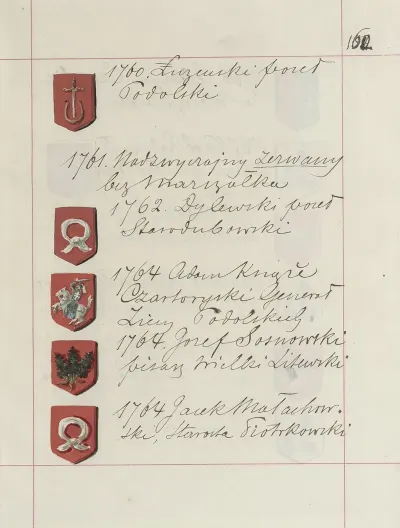 102.
1760. Łuzewski poseł
Podolski
1761. Nadzwyczajny Zerwany
bez Marszałka
1762. Dylewski poseł
Starodubowski
1764 Adam Książe
Czartoryski Generał
Ziem Podolskich
1764. Jozef Sosnowski
pisarz Wielki Litewski
1764 Jacek Małachow-
ski, Starosta Piotrkowski